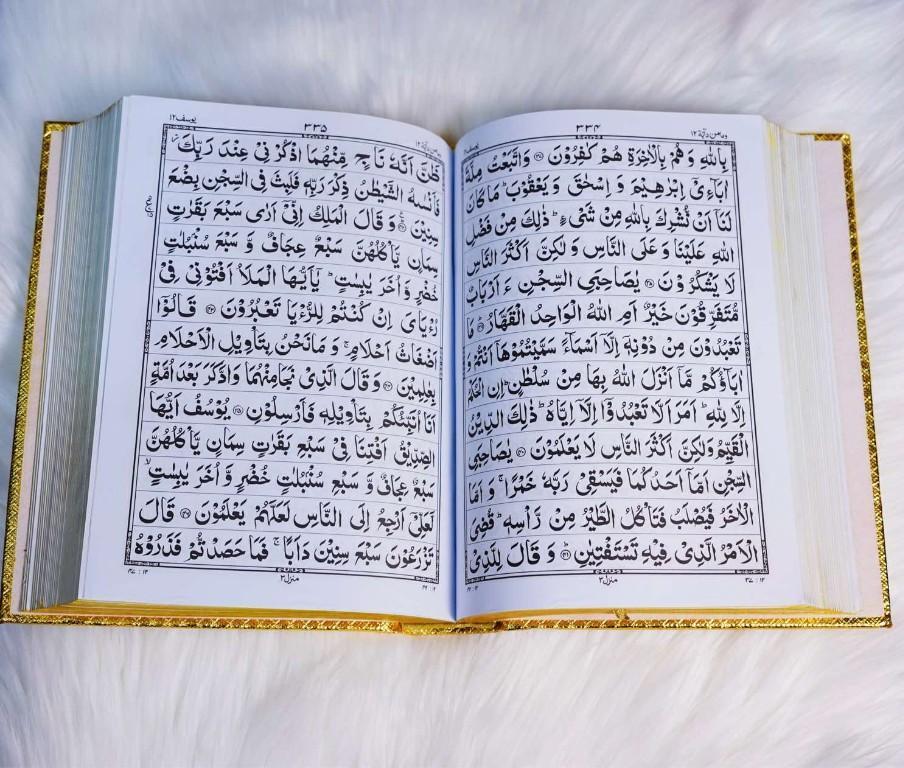 وما من دآبة ١٢
٣٣٤
بِاللّٰهِ وَهُمْ بِالْاٰخِرَةِ هُمْ كٰفِرُوْنَ ﴿۳۷﴾ وَاتَّبَعْتُ مِلَّةَ
اٰبَآءِیْۤ اِبْرٰهِیْمَ وَ اِسْحٰقَ وَ یَعْقُوْبَ ؕ مَا كَانَ
لَنَاۤ اَنْ نُّشْرِكَ بِاللّٰهِ مِنْ شَیْءٍ ؕ ذٰلِكَ مِنْ فَضْلِ
اللّٰهِ عَلَیْنَا وَ عَلَی النَّاسِ وَ لٰكِنَّ اَكْثَرَ النَّاسِ
لَا یَشْكُرُوْنَ ﴿۳۸﴾ یٰصَاحِبَیِ السِّجْنِ ءَ اَرْبَابٌ
مُّتَفَرِّقُوْنَ خَیْرٌ اَمِ اللّٰهُ الْوَاحِدُ الْقَهَّارُ ﴿۳۹﴾ مَا
تَعْبُدُوْنَ مِنْ دُوْنِهٖۤ اِلَّاۤ اَسْمَآءً سَمَّیْتُمُوْهَاۤ اَنْتُمْ وَ
اٰبَآؤُكُمْ مَّاۤ اَنْزَلَ اللّٰهُ بِهَا مِنْ سُلْطٰنٍ ؕ اِنِ الْحُكْمُ
اِلَّا لِلّٰهِ ؕ اَمَرَ اَلَّا تَعْبُدُوْۤا اِلَّاۤ اِیَّاهُ ؕ ذٰلِكَ الدِّیْنُ
الْقَیِّمُ وَلٰكِنَّ اَكْثَرَ النَّاسِ لَا یَعْلَمُوْنَ ﴿۴۰﴾ یٰصَاحِبَیِ
السِّجْنِ اَمَّاۤ اَحَدُكُمَا فَیَسْقِیْ رَبَّهٗ خَمْرًا ۚ وَ اَمَّا
الْاٰخَرُ فَیُصْلَبُ فَتَاْكُلُ الطَّیْرُ مِنْ رَّاْسِهٖ ؕ قُضِیَ
الْاَمْرُ الَّذِیْ فِیْهِ تَسْتَفْتِیٰنِ ﴿۴۱﴾ وَ قَالَ لِلَّذِیْ
منزل ٣
یوسف ١٢
٣٣٥
ظَنَّ اَنَّهٗ نَاجٍ مِّنْهُمَا اذْكُرْنِیْ عِنْدَ رَبِّكَ ؗ
فَاَنْسٰىهُ الشَّیْطٰنُ ذِكْرَ رَبِّهٖ فَلَبِثَ فِی السِّجْنِ بِضْعَ
سِنِیْنَ ﴿۴۲﴾ وَ قَالَ الْمَلِكُ اِنِّیْۤ اَرٰی سَبْعَ بَقَرٰتٍ
سِمَانٍ یَّاْكُلُهُنَّ سَبْعٌ عِجَافٌ وَّ سَبْعَ سُنْۢبُلٰتٍ
خُضْرٍ وَّ اُخَرَ یٰبِسٰتٍ ؕ یٰۤاَیُّهَا الْمَلَاُ اَفْتُوْنِیْ فِیْ
رُءْیَایَ اِنْ كُنْتُمْ لِلرُّءْیَا تَعْبُرُوْنَ ﴿۴۳﴾ قَالُوْۤا
اَضْغَاثُ اَحْلَامٍ ۚ وَ مَا نَحْنُ بِتَاْوِیْلِ الْاَحْلَامِ
بِعٰلِمِیْنَ ﴿۴۴﴾ وَ قَالَ الَّذِیْ نَجَا مِنْهُمَا وَادَّكَرَ بَعْدَ اُمَّةٍ
اَنَا اُنَبِّئُكُمْ بِتَاْوِیْلِهٖ فَاَرْسِلُوْنِ ﴿۴۵﴾ یُوْسُفُ اَیُّهَا
الصِّدِّیْقُ اَفْتِنَا فِیْ سَبْعِ بَقَرٰتٍ سِمَانٍ یَّاْكُلُهُنَّ
سَبْعٌ عِجَافٌ وَّ سَبْعِ سُنْۢبُلٰتٍ خُضْرٍ وَّ اُخَرَ یٰبِسٰتٍ ۙ
لَّعَلِّیْۤ اَرْجِعُ اِلَی النَّاسِ لَعَلَّهُمْ یَعْلَمُوْنَ ﴿۴۶﴾ قَالَ
تَزْرَعُوْنَ سَبْعَ سِنِیْنَ دَاَبًا ۚ فَمَا حَصَدْتُّمْ فَذَرُوْهُ
منزل ٣